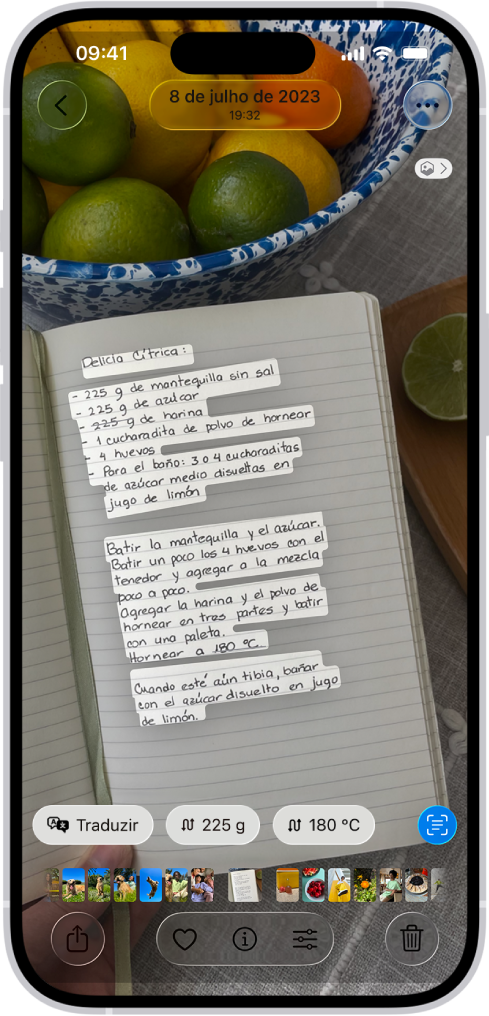 09:41
8 de julho de 2023
19:32
Delicia Cítrica:
- 225 g de mantequilla sin sal
- 225 g de azúcar
- 225 g de harina
- 1 cucharadita de polvo de hornear
- 4 huevos
- Para el baño: 3 o 4 cucharaditas
de azúcar medio disueltas en
jugo de limón
Batir la mantequilla y el azúcar.
Batir un poco los 4 huevos con el
tenedor y agregar a la mezcla
poco a poco.
Agregar la harina y el polvo de
hornear en tres partes y batir
con una paleta.
Hornear a 180 ºC.
Cuando esté aún tibia, bañar
con el azúcar disuelto en jugo
de limón.
Traduzir
225 g
180 ºC